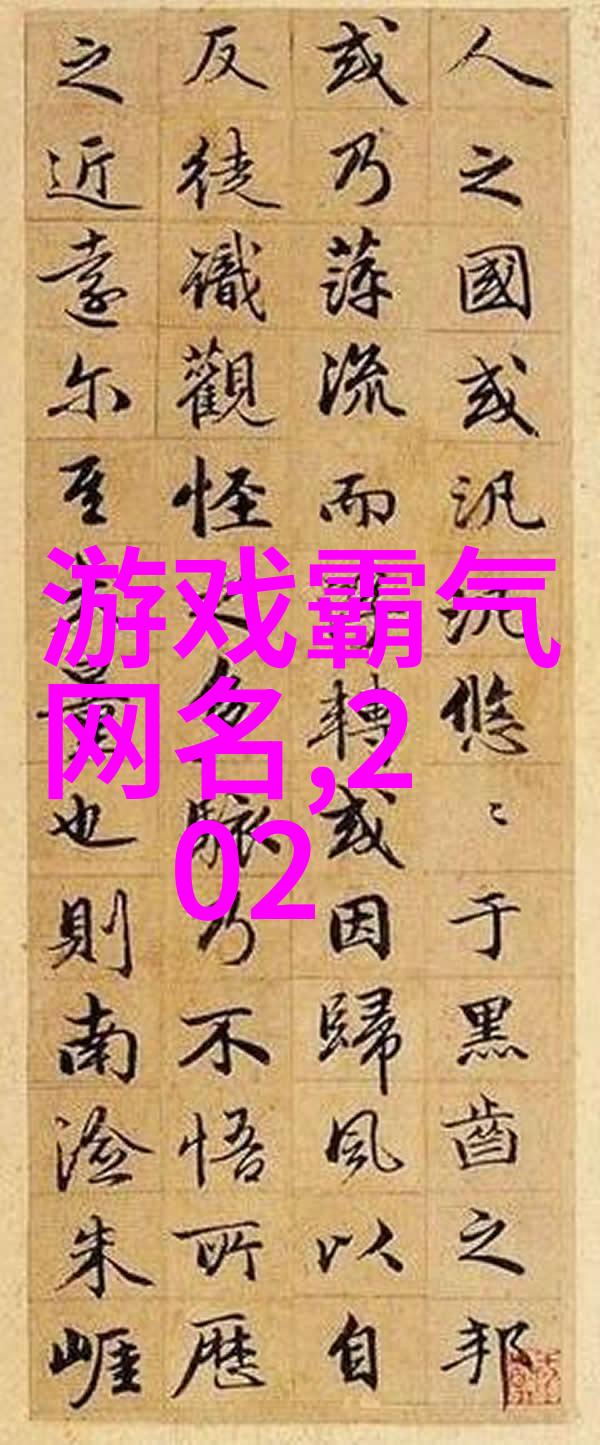 人之國或汎汎悠〻于黑齒之邦
或乃萍流而轉或因歸風以自
反徒識觀怪之多駭乃不悟所歷
之近遠尔至量也則南澰朱崕
游戏霸气
网名,2
02